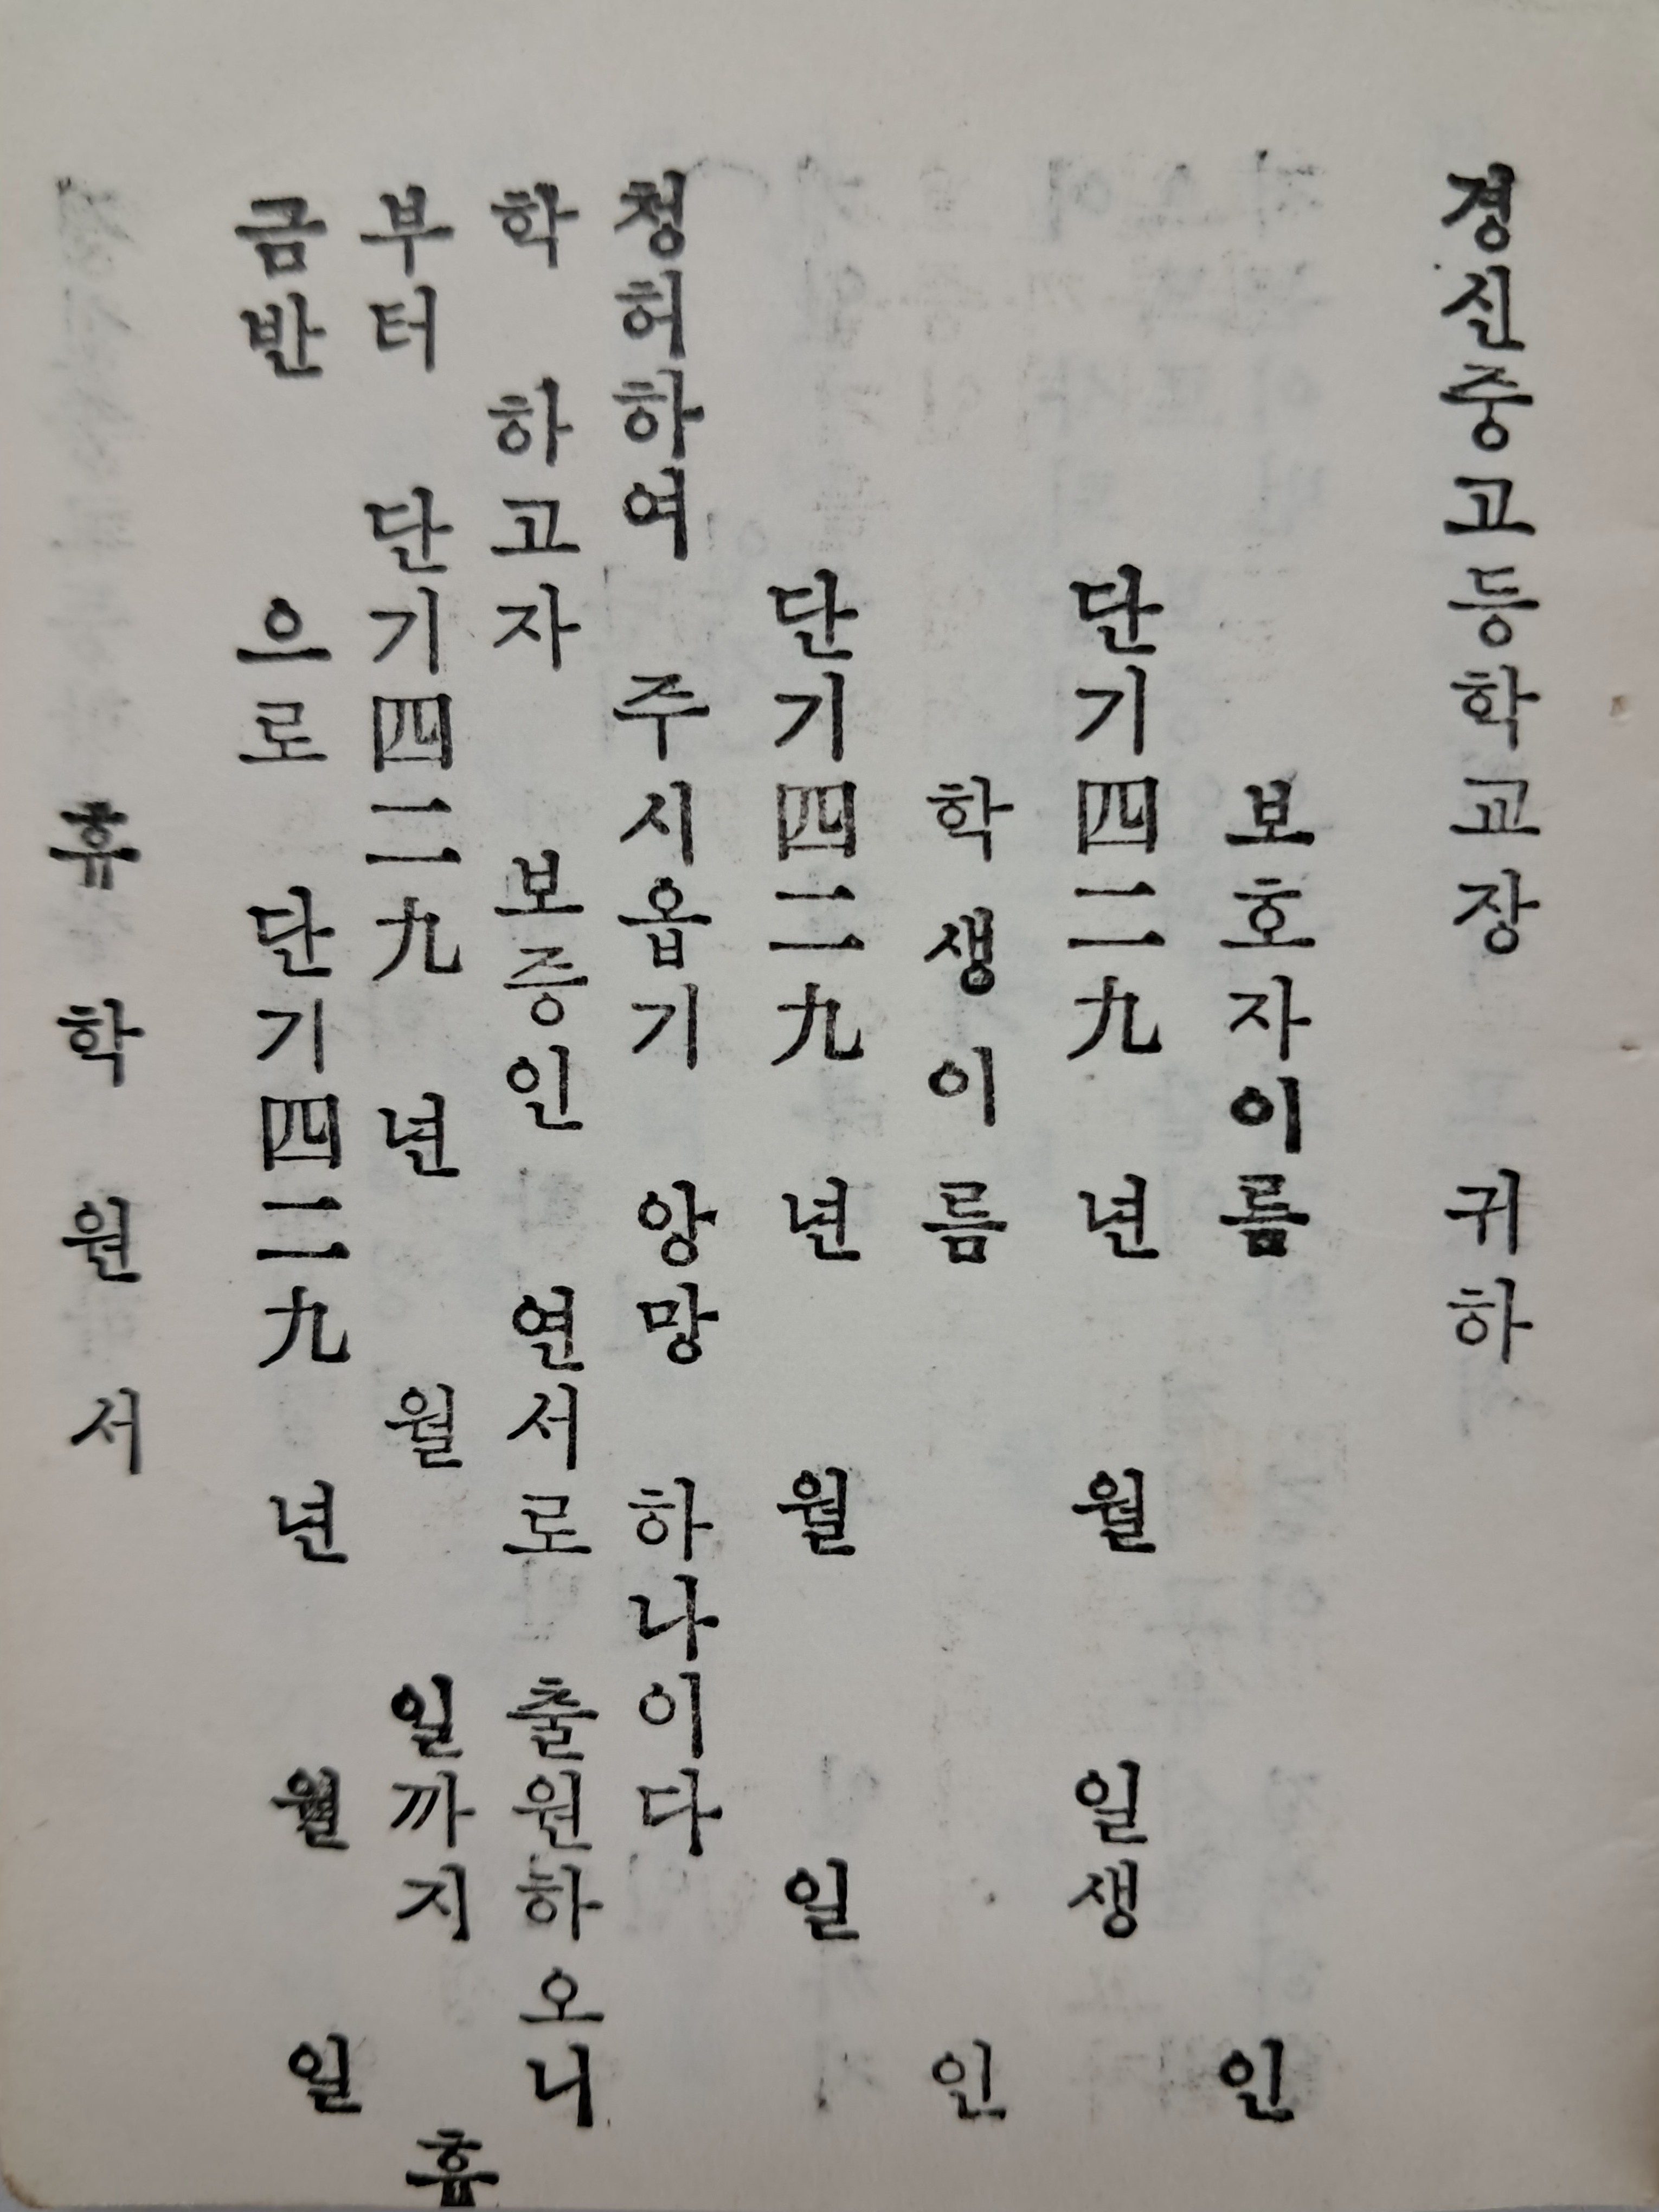 휴 학 원 서
금반 으로 단기四二九 년 월 일
부터 단기四二九 년 월 일까지 휴
학 하고자 보증인 연서로 출원하오니
청허하여 주시옵기 앙망 하나이다
단기四二九 년 월 일
학생이름 인
단기四二九 년 월 일생
보호자이름 인
경신중고등학교장 귀하